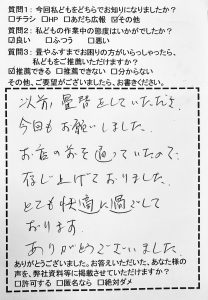 質問1：今回私どもをどちらでお知りになりましたか？
□チラシ □HP □あだち広報 ☑その他
質問2：私どもの作業中の態度はいかがでしたか？
☑良い □ふつう □悪い
質問3：畳やふすまでお困りの方がいらっしゃったら、
私どもをご推薦いただけますか？
☑推薦できる □推薦できない □分からない
その他、ご要望がございましたら、お書きください。
以前、畳替をしていただき、
今回もお願いしました。
お店の前を通っていたので、
存じ上げておりました。
とても快適に過ごして
おります。
ありがとうございました
ありがとうございました。お答えいただいた、あなた様の
声を、弊社資料等に掲載させていただけますか？
□許可する □匿名なら □絶対ダメ